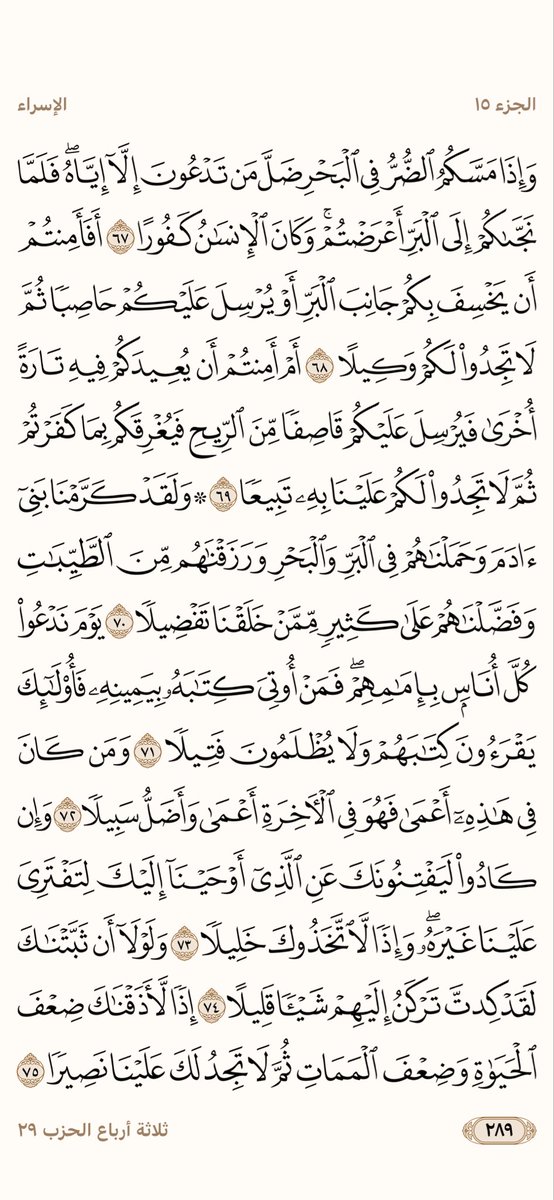 الجزء ١٥
الإسراء
وَإِذَا مَسَّكُمُ ٱلضُّرُّ فِي ٱلْبَحْرِ ضَلَّ مَن تَدْعُونَ إِلَّآ إِيَّاهُۖ فَلَمَّا
نَجَّىٰكُمْ إِلَى ٱلْبَرِّ أَعْرَضْتُمْۚ وَكَانَ ٱلْإِنسَٰنُ كَفُورًا ٦٧ أَفَأَمِنتُمْ
أَن يَخْسِفَ بِكُمْ جَانِبَ ٱلْبَرِّ أَوْ يُرْسِلَ عَلَيْكُمْ حَاصِبًا ثُمَّ
لَا تَجِدُوا۟ لَكُمْ وَكِيلًا ٦٨ أَمْ أَمِنتُمْ أَن يُعِيدَكُمْ فِيهِ تَارَةً
أُخْرَىٰ فَيُرْسِلَ عَلَيْكُمْ قَاصِفًا مِّنَ ٱلرِّيحِ فَيُغْرِقَكُم بِمَا كَفَرْتُمْ
ثُمَّ لَا تَجِدُوا۟ لَكُمْ عَلَيْنَا بِهِۦ تَبِيعًا ٦٩ ۞ وَلَقَدْ كَرَّمْنَا بَنِىٓ
ءَادَمَ وَحَمَلْنَٰهُمْ فِي ٱلْبَرِّ وَٱلْبَحْرِ وَرَزَقْنَٰهُم مِّنَ ٱلطَّيِّبَٰتِ
وَفَضَّلْنَٰهُمْ عَلَىٰ كَثِيرٍ مِّمَّنْ خَلَقْنَا تَفْضِيلًا ٧٠ يَوْمَ نَدْعُوا۟
كُلَّ أُنَاسٍۭ بِإِمَٰمِهِمْۖ فَمَنْ أُوتِىَ كِتَٰبَهُۥ بِيَمِينِهِۦ فَأُو۟لَٰٓئِكَ
يَقْرَءُونَ كِتَٰبَهُمْ وَلَا يُظْلَمُونَ فَتِيلًا ٧١ وَمَن كَانَ
فِي هَٰذِهِۦٓ أَعْمَىٰ فَهُوَ فِي ٱلْأَخِرَةِ أَعْمَىٰ وَأَضَلُّ سَبِيلًا ٧٢ وَإِن
كَادُوا۟ لَيَفْتِنُونَكَ عَنِ ٱلَّذِىٓ أَوْحَيْنَآ إِلَيْكَ لِتَفْتَرِىَ
عَلَيْنَا غَيْرَهُۥۖ وَإِذًا لَّٱتَّخَذُوكَ خَلِيلًا ٧٣ وَلَوْلَآ أَن ثَبَّتْنَٰكَ
لَقَدْ كِدتَّ تَرْكَنُ إِلَيْهِمْ شَيْـًٔا قَلِيلًا ٧٤ إِذًا لَّأَذَقْنَٰكَ ضِعْفَ
ٱلْحَيَوٰةِ وَضِعْفَ ٱلْمَمَاتِ ثُمَّ لَا تَجِدُ لَكَ عَلَيْنَا نَصِيرًا ٧٥
٢٨٩
ثلاثة أرباع الحزب ٢٩